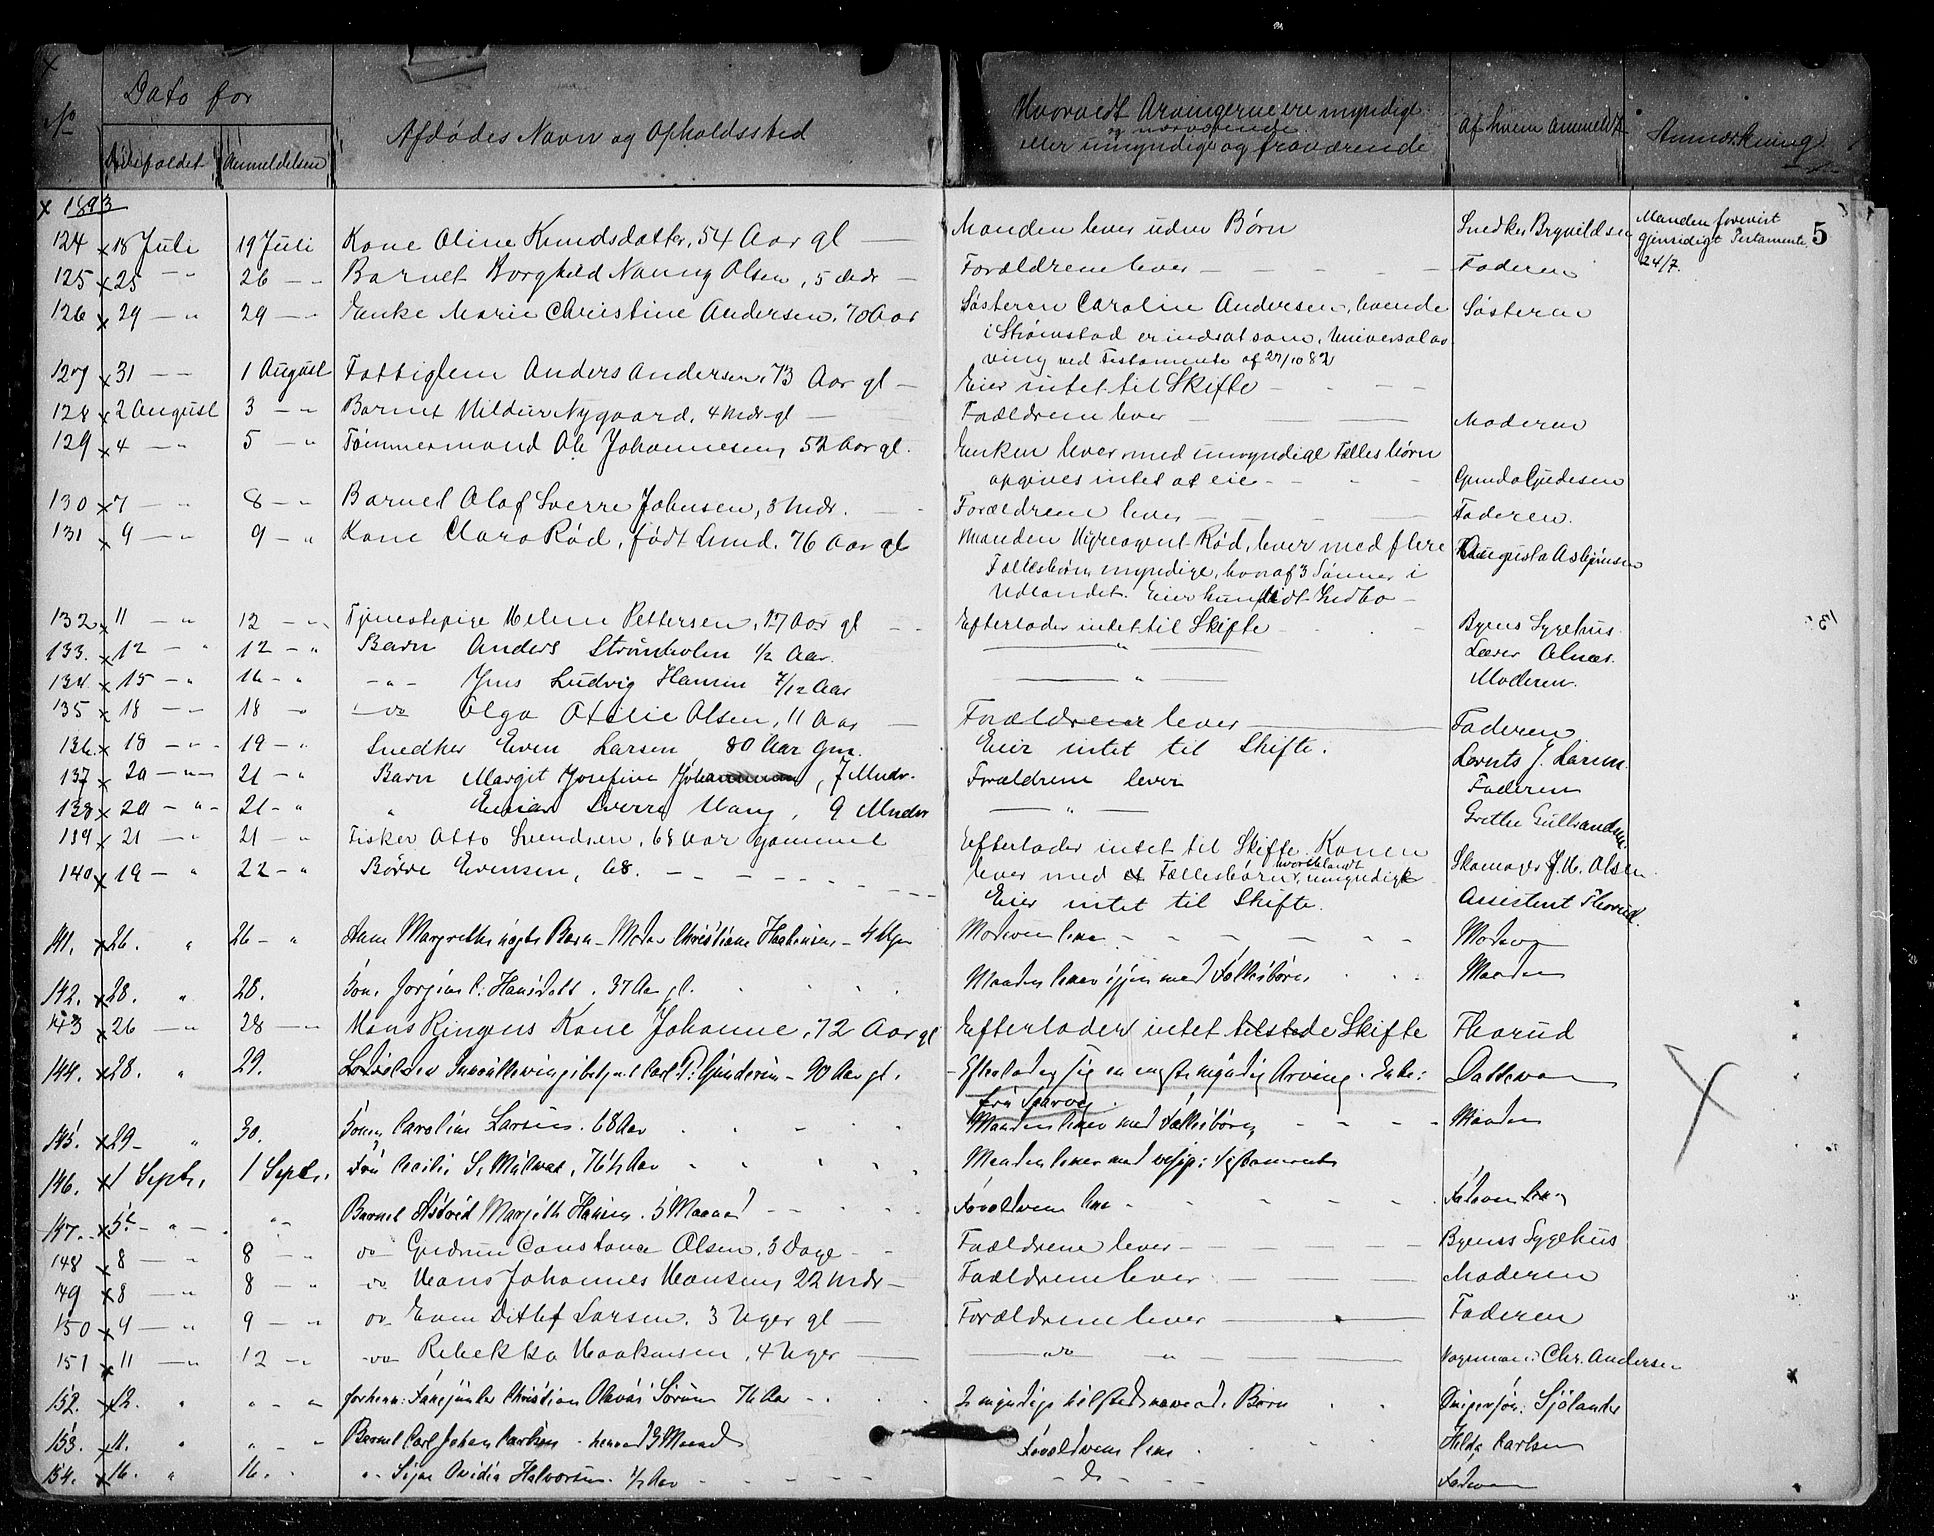 No Dato for Afdødes Navn og Opholdssted Hvorvidt Arvingerne ere myndige og nærværende Af hvem anmeldt Anmærkning
Dødsfaldet Anmeldelsen eller umyndige og fraværende
1893 5
124 18 Juli 19 Juli Kone Oline Knudsdatter, 54 Aar gl — Manden lever uden Børn Snedker Brynildsen Manden forevist gjensidigt Testamente 24/7.
125 25 — " 26 — " Barnet Borghild Nanny Olsen, 5 Mdr — Forældrene lever — Faderen
126 29 — " 29 — " Enke Marie Christine Andersen, 70 Aar Søsteren Caroline Andersen, boende Søsteren
i Strømstad er indsat som Universalar
ving ved Testamente af 27/10 82
127 31 — " 1 August Fattiglem Anders Andersen, 73 Aar gl — Eier intet til Skifte —
128 2 August 3 — " Barnet Hildur Nygaard, 4 Mdr gl — Forældrene lever — Moderen
129 4 — " 5 — " Tømmermand Ole Johannesen, 52 Aar gl. Enken lever med umyndige Fællesbørn
opgives intet at eie — Gunda Gudesen
130 7 — " 8 — " Barnet Olaf Sverre Johnsen, 3 Mdr. — Forældrene lever — Faderen.
131 9 — " 9 — " Kone Clara Rød, født Lund, 76 Aar gl Manden Hyreagent Rød, lever med flere Augusta Asbjørnsen
Fællesbørn, myndige, hvoraf 3 Sønner i
Udlandet. Eier kun lidt Indbo —
132 11 — " 12 — " Tjenestepige Helene Pettersen, 17 Aar gl — Efterlader intet til Skifte — Byens Sygehus.
133. 12 — " 12 — " Barn Anders Strømholm 1/2 Aar. — " — Lærer Alnæs.
134. 15 — " 16 — " — " — Jens Ludvig Hansen 7/12 Aar — " — Moderen.
135 18 — " 18 — " do Olga Otelie Olsen, 11 Aar — Forældrene lever — Faderen
136. 18 — " 19 — " Snedker Even Larsen, 80 Aar gm. Eier intet til Skifte. Lorents J. Larsen.
137 20 — " 21 — " Barn Margit Josefine Johannesen, 7 Mndr. Forældrene lever Faderen
138 20 — " 21 — " " Einar Sverre Haug, 9 Mndr — " — Grethe Gullbrandsen.
139 21 — " 21 — " Fisker Otto Svendsen, 68 Aar gammel Efterlader intet til Skifte. Konen Skomager J. H. Olsen
lever med Fællesbørn, hvoriblandt umyndige
140 19 — " 22 — " Børre Evensen, 68. — Eier intet til Skifte. Assistent Thorud.
141. 26. " 26 — " Anne Margrethe uægte Barn — Moder Christiane Haakensen — 4 Uger Moderen lever — Moderen
142. 28. " 28. Kone Jorgine C. Hansdatt. 37 Aar gl. Manden lever igjen med Fællesbørn Manden
143 26 — " 28 — " Hans Ringens Kone Johanne, 72 Aar gl Efterlader intet tilstede Skifte Thorud
144. 28. " 29. Carl D. Gundersen — 90 Aar gl. — Efterlader sig en eneste myndig Arving. Enke: Datteren
Fru Sparve.
145. 29 — " 30. Konen Caroline Larsen. 68 Aar Manden lever med Fællesbørn — Manden
146. 1 Septr. 1 Septr. Fru Cecilie S. 76 1/2 Aar Manden lever med Testamente
147. 5 — " — " Barnet Astrid Margith Hansen. 5 Maaned — Forældrene leve — Faderen
148 8 — " 8 — " do Gudrun Constance Olsen, 3 Dage — Forældrene lever — Byens Sygehus
149 8 — " 8 — " do Hans Johannes Hansen, 22 Mdr — Forældrene lever — Moderen
150 9 — " 9 — " do Even Ditlef Larsen, 3 Uger gl — Forældrene lever — Faderen
151 11 — " 12 — " do Rebekka Haakonsen, 4 Uger — do " — Vognmand Chr. Andersen
152. 12. " " — " forhenv: Christian Olavus Sørum 76 Aar 2 myndige tilstedeværende Børn Sjölander
153. 11. " " — " Barnet Carl Johan Carlsen 3 Maaned Forældrene leve Hilda Carlsen
154. 16. " 16. " Signe Ovidia Halvorsen 1/2 Aar — do — Faderen